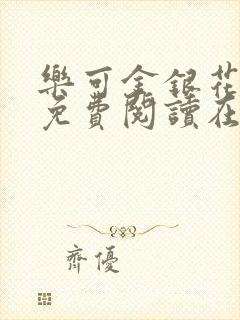 樂可金銀花
免費閱讀在
齊優